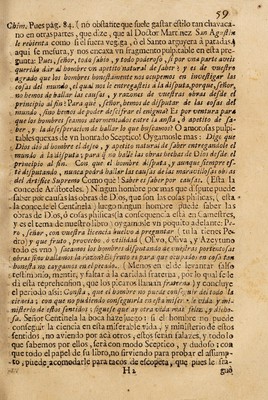 59
Chim. Pues pag. 84. (no obstante que suele gastar estilo tan chavaca-
no en otras partes, que dize, que al Doctor Martinez San Agustin
le rebienta como si fuera vegiga, ò el Santo arguyera à patadas)
aqui se mesura, y nos encaxa un fragmento pulpitable en esta pre-
gunta: Pues, señor, todo sabio, y todo poderoso, si por una parte aveis
querido dar al hombre un apetito natural de saber? y es de vuestro
agrado que los hombres honestamente nos ocupemos en investigar las
cosas del mundo, el qual nos le entregasteis à la disputa, porque, señor,
no hemos de hallar las causas, y razones de vuestras obras desde el
principio al fin? Para què, señor, hemos de disputar de las cosas del
mundo, sino hemos de poder descifrar el enigma? Es por ventura para
que los hombres seamos atormentados entre la ansia, ò apetito de sa-
ber, y la desesperacion de hallar lo que buscamos? O amorosas pulpi-
tables quexas de un honrado Sceptico! Oygamosle mas: Dize que
Dios diò al hombre el deseo, y apetito natural de saber entregandole el
mundo à la disputa; para que no halle las obras hechas de Dios desde el
principio al fin. Con que el hombre disputa, y aunque siempre es-
tè disputando, nunca podrà hallar las causas de las maravillosas obras
del Artifice Supremo Como que? Saber es saber por causas. (Esta la
concede Aristoteles.) Ningun hombre por mas que dispute puede
saber por causas las obras de Dios, que son las cosas phisicas; (esta
la concede el Centinela) luego ningun hombre puede saber las
obras de Dios, ò cosas phisicas (la consequencia està en Canestres,
y es el tema de nuestro libro) oygamosle un poquito adelante: Pe-
ro, señor, con vuestra licencia buelvo à preguntar (tu la tienes Pe-
dro) y que fruto, provecho, ò utilidad (Olivo, Oliva, y Azeytuno
todo es uno) sacamos los hombres disputando de vuestras portentosas
obras sino hallamos la razon? Es fruto es para que ocupados en cosa tan
honesta no caygamos en el pecado. (Menos en el de levantar falsos
testimonios, mentir, y faltar à la caridad fraterna; por lo qual se le
dà esta reprehension, que los picaros llaman fraterna) y concluye
el periodo assi: Consta, que el hombre no puede conseguir del todo la
ciencia; con que no pudiendo conseguirla en esta miserable vida, y mi-
nisterio de estos sentidos; siguese que ay otra vida mas feliz, y dicho-
sa. Señor Centinela la boca haze juego: si el hombre no puede
conseguir la ciencia en esta miserable vida, y ministerio de estos
sentidos, no aviendo por acà otros, estos seràn falaces, y todo lo
que sabemos por ellos, serà con modo Sceptico, y dudoso; con
que todo el papel de su libro, no sirviendo para probar el assump-
to, puede acomodarle para tacos de escopeta, que pues le fra-
H 2
guò